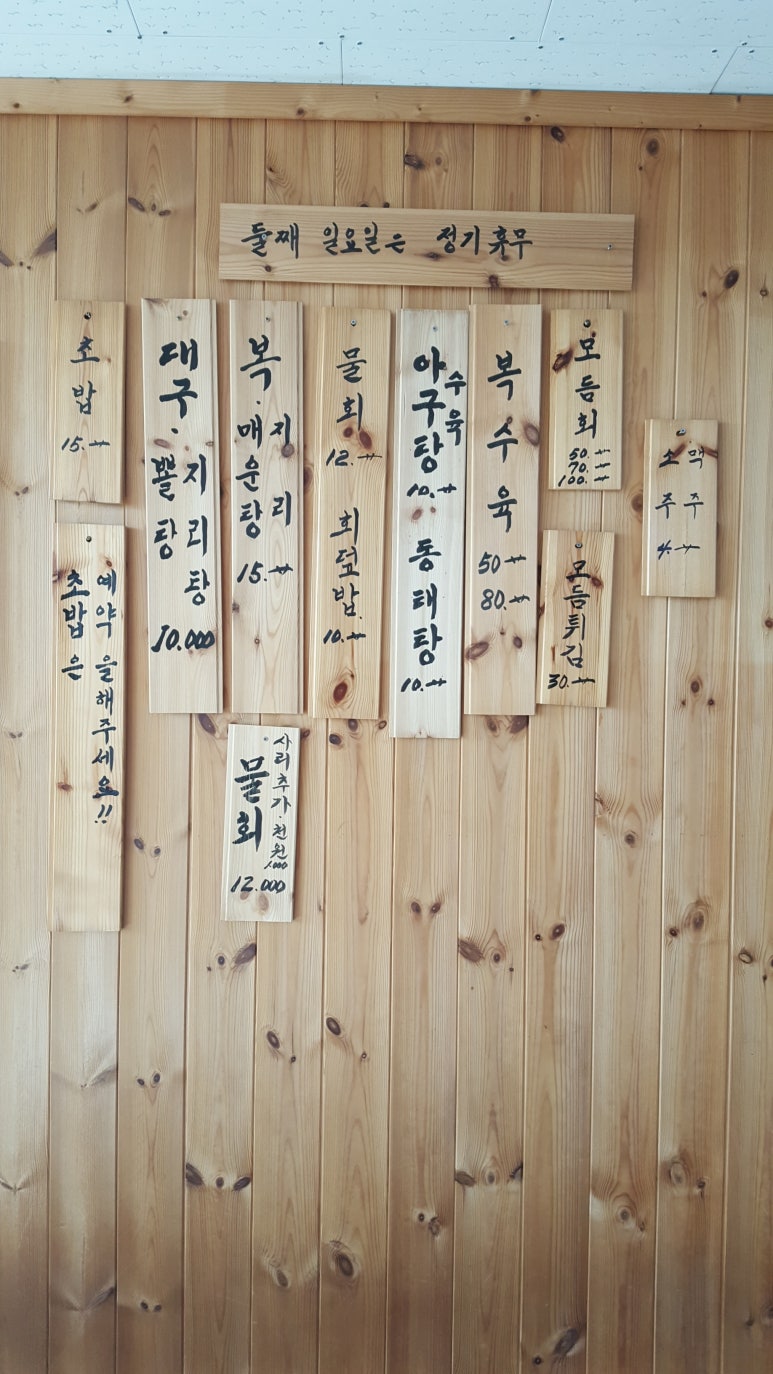 둘째 일요일은 정기휴무
초밥
15.-
초밥은
예약을해주세요!!
대구·
뽈탕
지리탕
10.000
복·
매운탕
지리
15.-
물회
12.-
회덮밥
10.-
아구탕
수육
10.-
동태탕
10.-
복수육
50-
80.-
모듬회
50.-
70.-
100.-
모듬튀김
30.-
소주
막주
4.-
물회
사리추가·천원
1.000
12.000